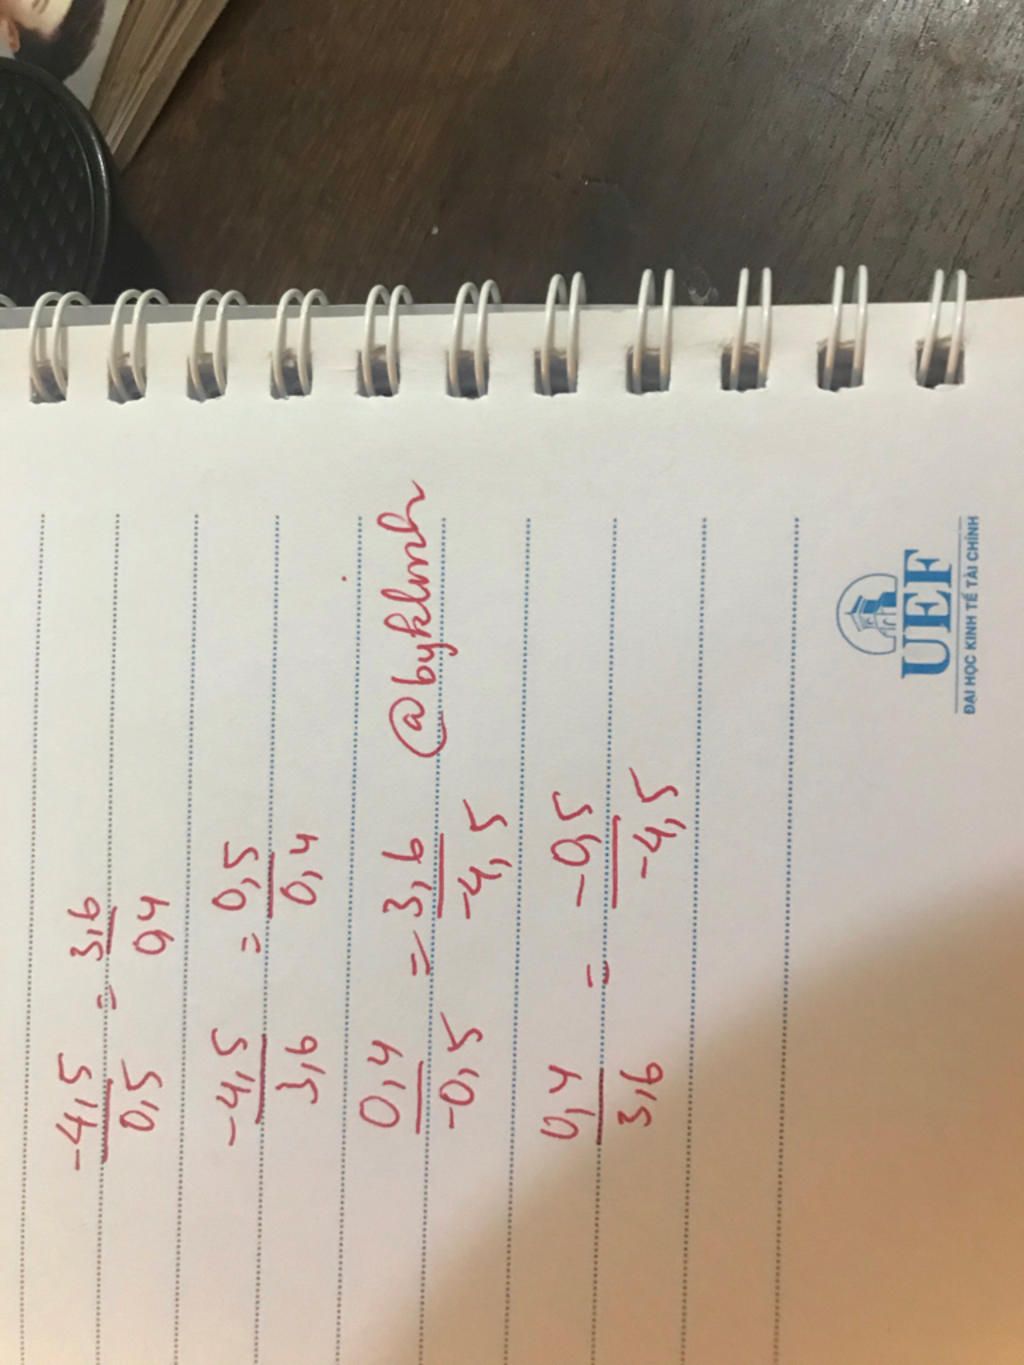 -4,5 = 3,6
0,5 0,4
-4,5 = 0,5
3,6 0,4
0,4 = 3,6 @byklmh
-0,5 -4,5
0,4 = -0,5
3,6 -4,5
UEF
ĐẠI HỌC KINH TẾ TÀI CHÍNH